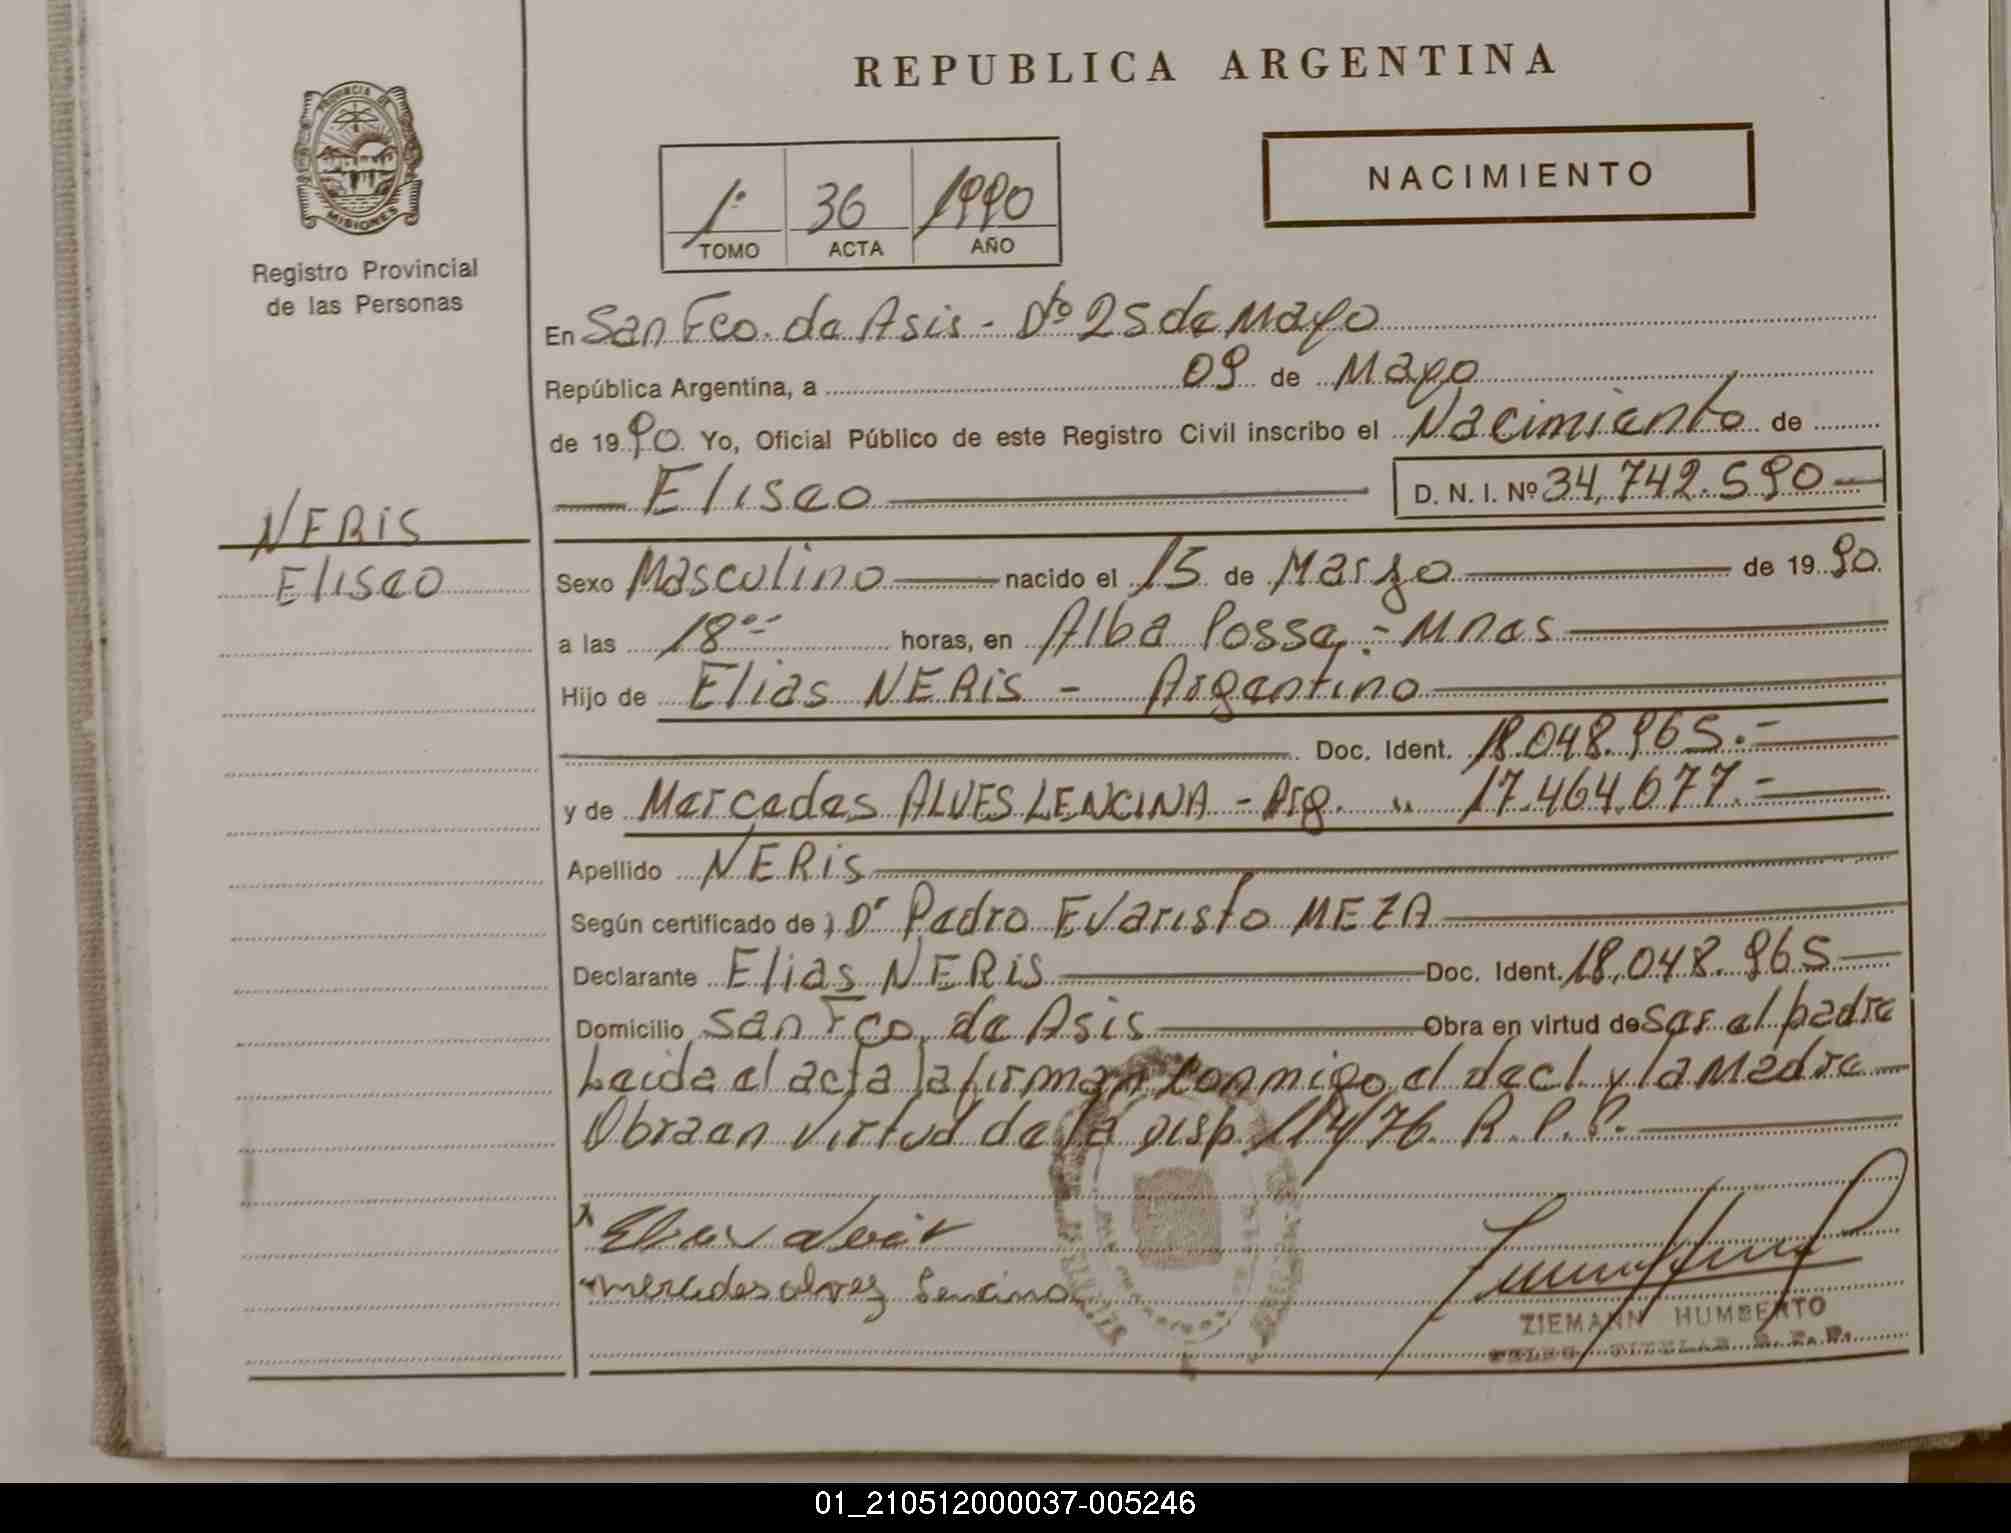 REPUBLICA ARGENTINA
PROVINCIA DE
MISIONES
Registro Provincial
de las Personas
1º 36 1990
TOMO ACTA AÑO
NACIMIENTO
En San Fco. de Asis - Dto 25 de Mayo
República Argentina, a 09 de Mayo
de 1990 Yo, Oficial Público de este Registro Civil inscribo el Nacimiento de
Eliseo D. N. I. Nº 34,742.590
NERIS
Eliseo
Sexo Masculino nacido el 15 de Marzo de 1990
a las 18 horas, en Alba Posse - Mnes
Hijo de Elias NERIS - Argentino
Doc. Ident. 18.048.965.-
y de Mercedes ALVES LENCINA - Arg. " 17.464.677.-
Apellido NERIS
Según certificado de Dr Pedro Evaristo MEZA
Declarante Elias NERIS Doc. Ident. 18.048.965
Domicilio San Fco. de Asis Obra en virtud de ser el padre
Leida el acta la firman conmigo el decl. y la Madre
Obra en virtud de la Disp. 114/76 R. P. P.
mercedes alvez Lencina
ZIEMANN HUMBERTO
01_210512000037-005246